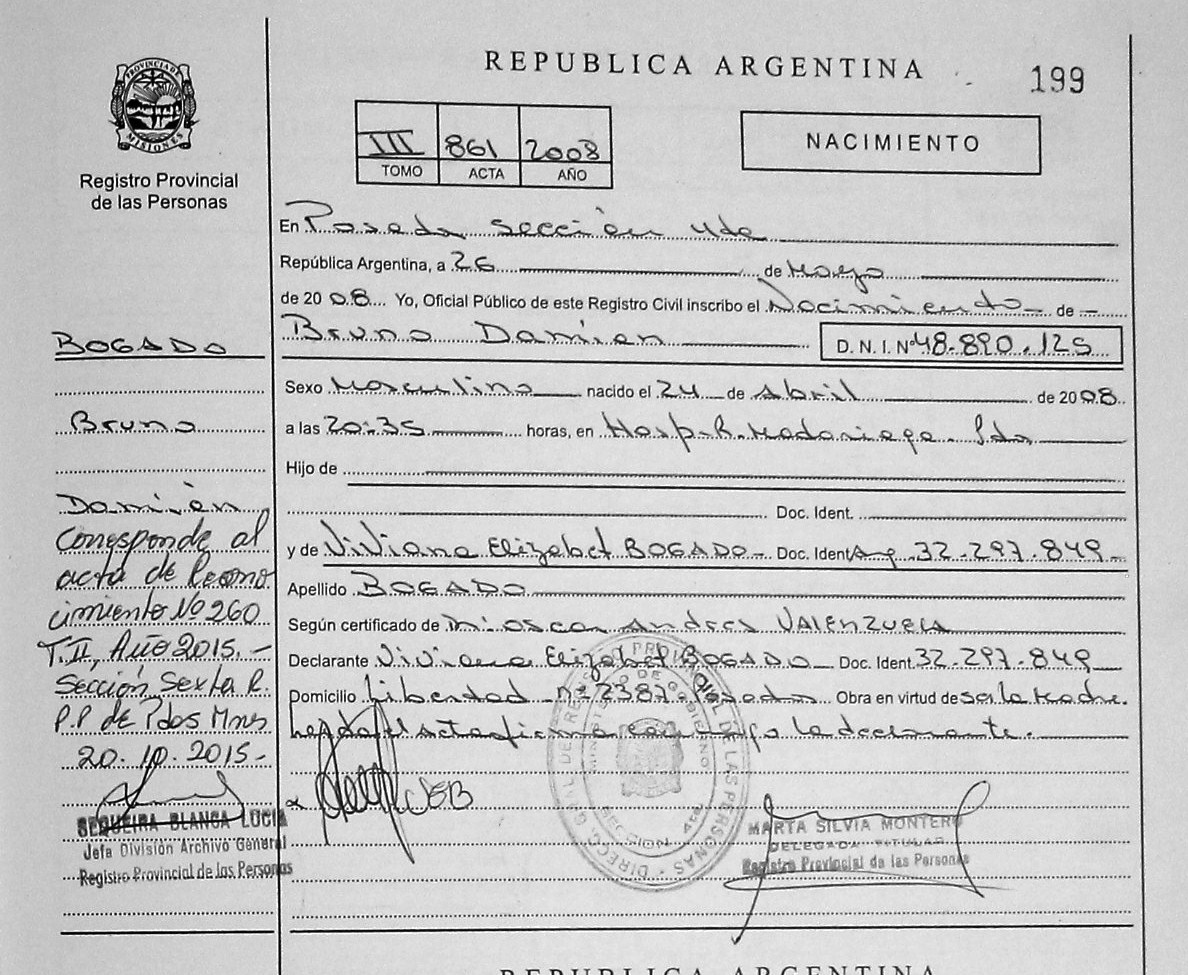 REPUBLICA ARGENTINA
199
PROVINCIA DE MISIONES
Registro Provincial
de las Personas
III 861 2008
TOMO ACTA AÑO
NACIMIENTO
En Posadas sección 4ta
República Argentina, a 26 de Mayo
de 2008 Yo, Oficial Público de este Registro Civil inscribo el Nacimiento de
Bruno Damien D. N. I. Nº 48.890.125
Sexo Masculino nacido el 24 de Abril de 2008
a las 20:35 horas, en Hosp. R. Madariaga. Pdas
Hijo de
Doc. Ident.
y de Viviana Elizabet BOGADO Doc. Ident Arg 32.297.849
Apellido BOGADO
Según certificado de Andres VALENZUELA
Declarante Viviana Elizabet BOGADO Doc. Ident. 32.297.849
Domicilio Libertad nº 2387 Posadas Obra en virtud de ser la Madre.
Leyda el Acta firma conmigo la declarante.
VEB
DIRECC. GRAL. DE REGISTRO PROVINCIAL DE LAS PERSONAS
MINISTERIO DE GOBIERNO
SECCION 4ta
MARTA SILVIA MONTERO
DELEGADA TITULAR
Registro Provincial de las Personas
BOGADO
Bruno
Damièn
Corresponde al
acta de Recono
cimiento Nº 260
T. II, Año 2015.-
Sección Sexta R.
P.P de Pdas Mnes
20.10.2015-
SEQUEIRA BLANCA LUCIA
Jefa División Archivo General
Registro Provincial de las Personas
REPUBLICA ARGENTINA